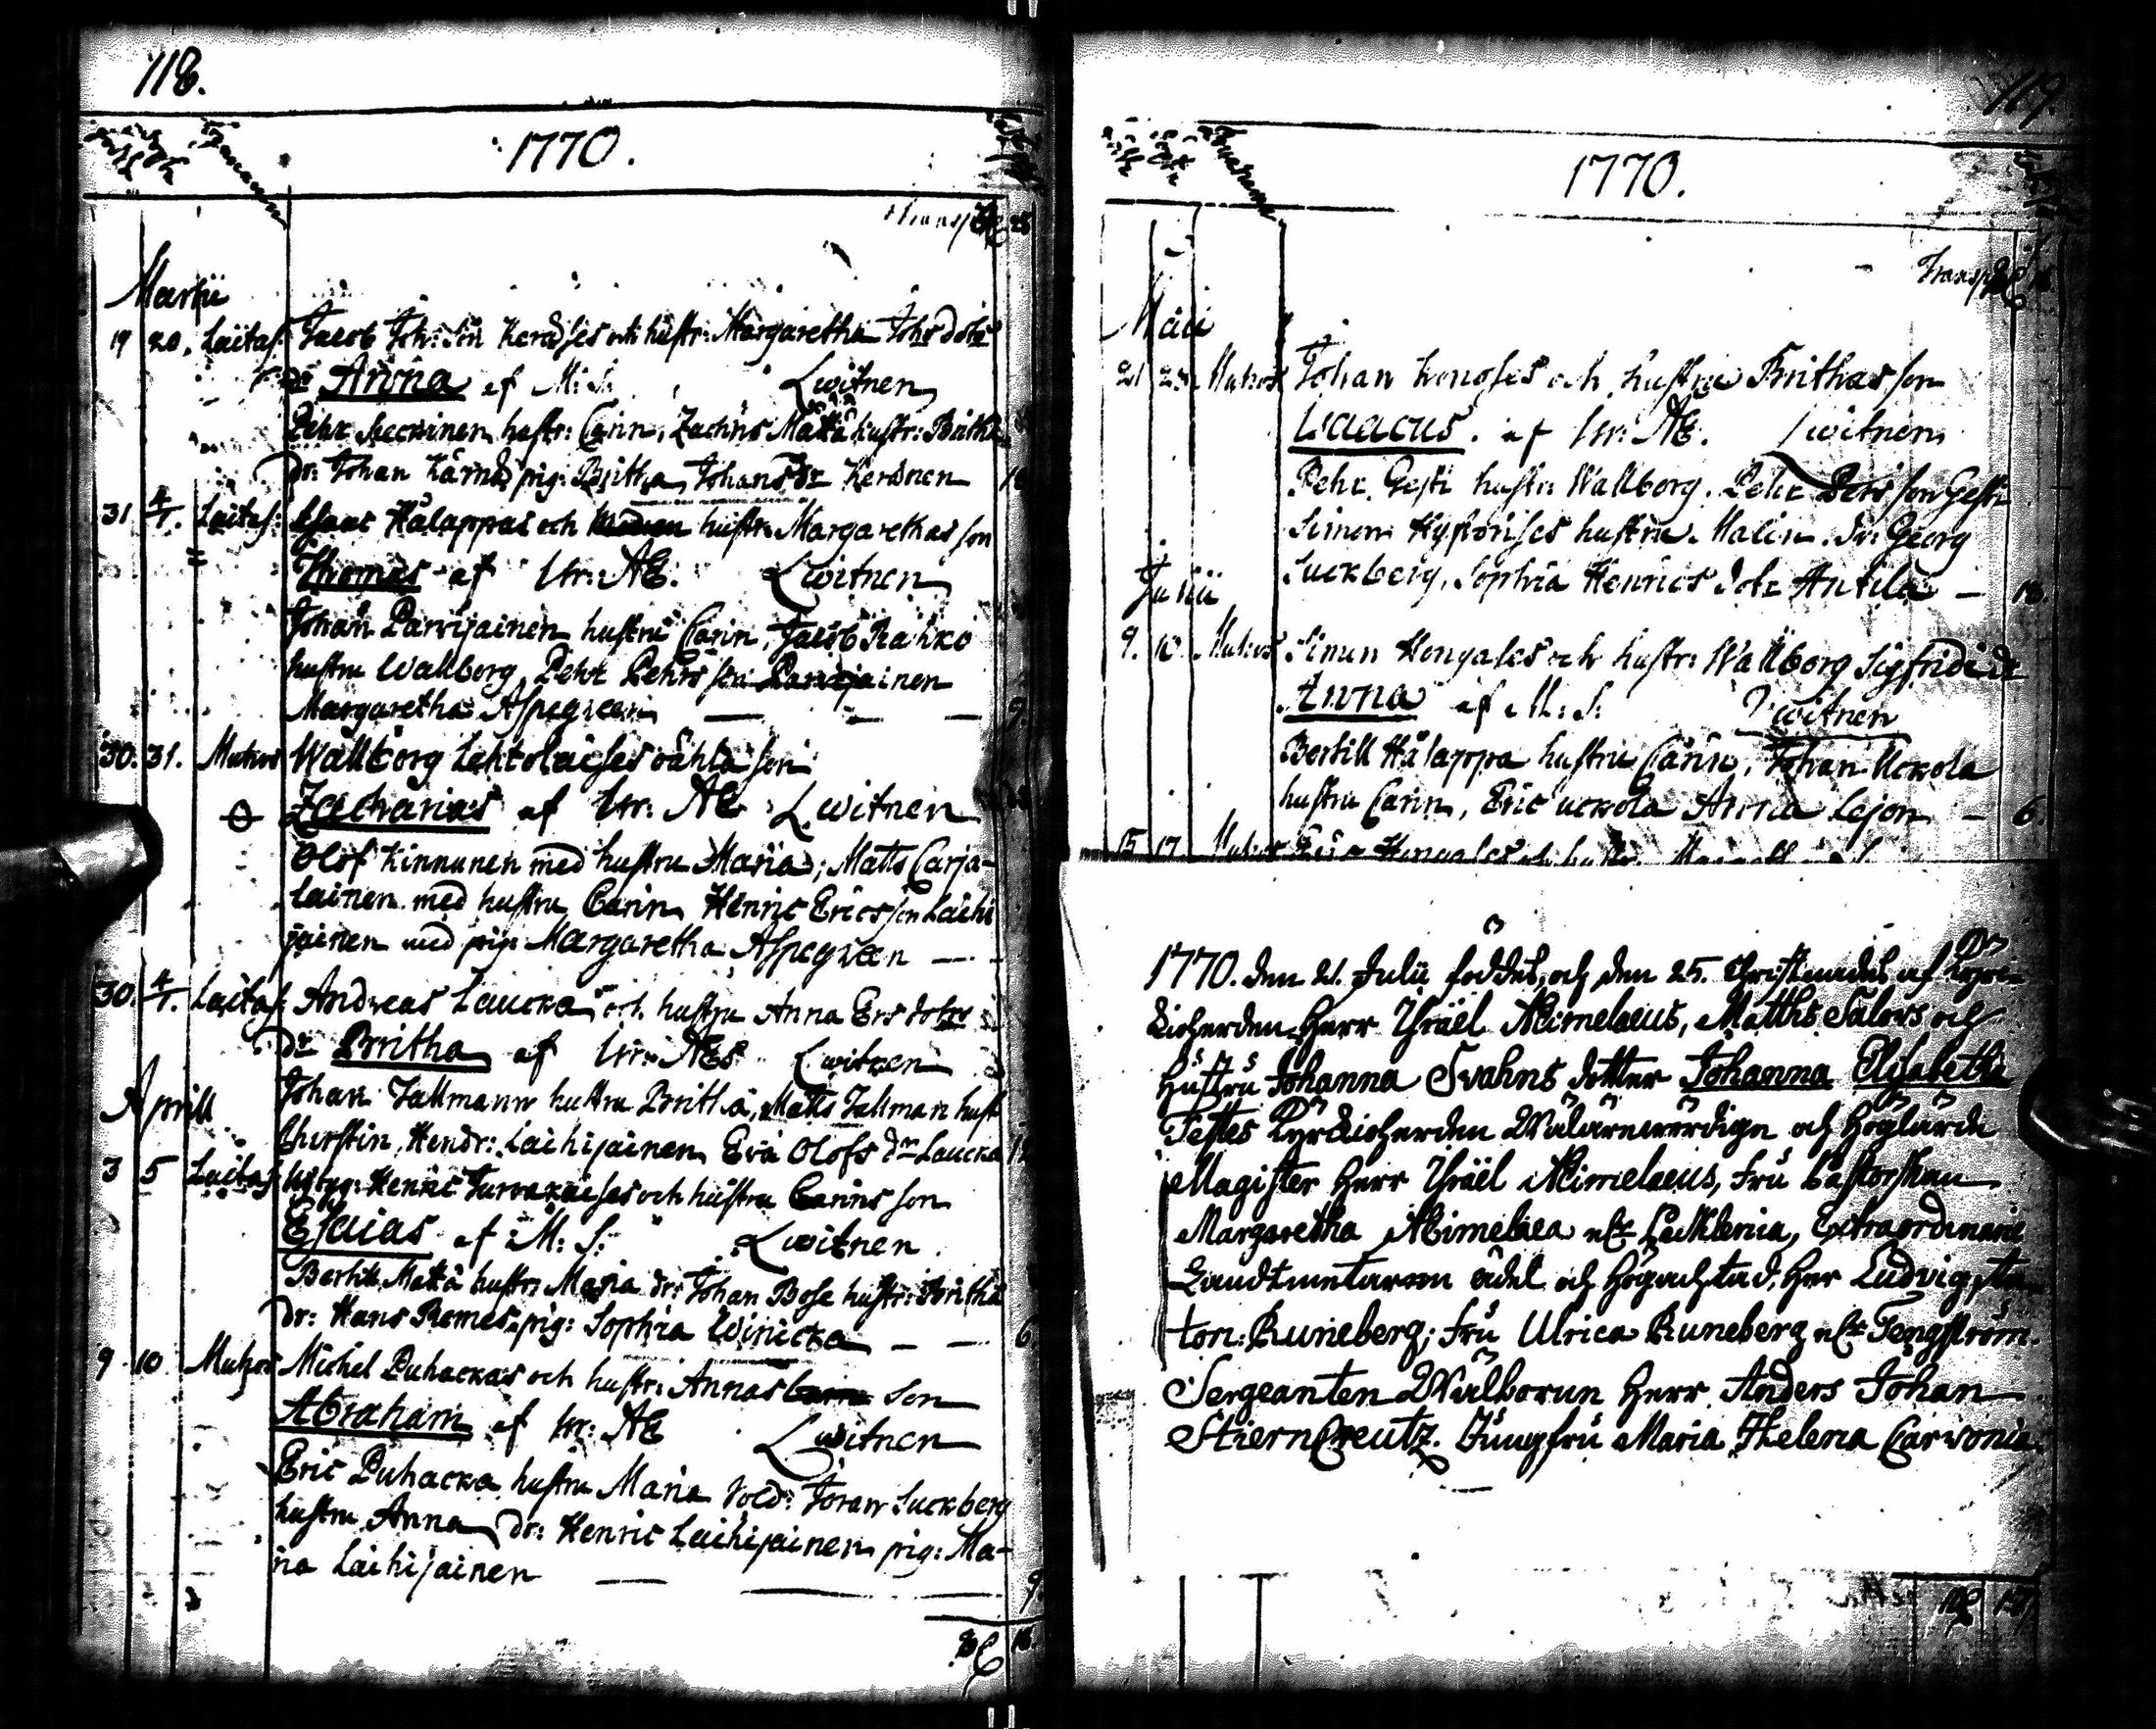 118.
1770.
Transp
Martii
19 20. Laitas. Jacob Joh: Son Keräses och hustr: Margaretha Johs dotr
dr Anna af M: S: Lwitnen
Pehr hustr: Carin, Zachris Mättä hustr: Britha
dr: Johan Kärnä pig: Britha Johans dr Keränen
31 4/1. Laitas: Isaac Hälappas och hustr. Margarethas son
Thomas af Hr: AE: Lwitnen
Johan Parvijainen hustru Carin, Jacob Rahko
hustru Wallborg, Pehr Pehrs son Parvijainen
Margaretha Aspegreen — — — 9.
30. 31. Muhos Wallborg Lehtolaises oächta son
Zacharias af Hr: AE Lwitnen
Olof Kinnunen med hustru Maria; Matts Carja-
lainen med hustru Carin, Henric Ericsson Laihi
jainen med pig: Margaretha Aspegreen —
30. 4/1. Laitas Andreas Laucka och hustru Anna Ers dotr
dr Britha af Hr: AE: Lwitnen
Aprill
Johan Tallmann hustru Britha, Matts Tallman hust
Cherstin, Hendr: Laihijainen Eva Olofs dr Laucka 12
3 5 Laitas Nybyg: Henric Turvakaises och hustru Carins son
Esaias af M: S: Lwitnen
Bertill Mättä hustr: Maria dr: Johan Bose hustr: Britha
dr: Hans Remes, pig: Sophia Winicka — — 6.
9 10 Muhos Michel Puhackas och hustr: Annas son
Abraham af Hr: AE Lwitnen
Eric Puhacka hustru Maria Sold: Jöran Suckberg
hustru Anna, dr: Henric Laihijainen pig: Ma-
ria Laihijainen — 9
16.
119.
1770.
Transp
Maii
21 23. Muhos Johan Konoses och hustru Brithas son
Isaacus. af Hr: AE. Lwitnen
Pehr Gesti hustru Wallborg. Pehr Pers son Gesti
Simon hustru Malin. dr: Georg
Suckberg, Sophia Henrics dotr Antila — 18.
Junii
9. 10. Muhos Simon Hongales och hustr: Wallborg Sigfridi dr
Anna af M: S: Lwitnen
Bertill Hälappa hustru Carin, Johan Uckola
hustru Carin, Eric Uckola Anna Lejon — 6.
15 17 Muhos
1770. den 21. Julii föddes, och den 25. Christnades af Kyrc-
kioherden Herr Israël Mimelaeus, Matths Salovs och
Hustru Johanna Svahns dotter Johanna Elisabetha
Testes Kyrckioherden Wälärewördige och Höglärde
Magister Herr Israël Mimelaeus, Fru Pastorskan
Margaretha Mimelaea Extraordinarie
Landtmetaren ädel och Högachtad Her Ludvig An-
ton: Runeberg; Fru Ulrica Runeberg Tengström.
Sergeanten Wälboren Herr Anders Johan
StiernCreutz. Jungfru Maria Helena Carvonia.